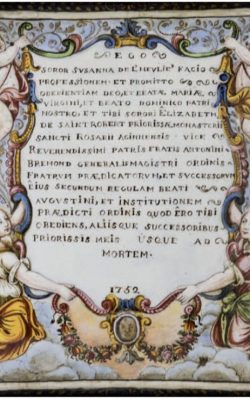 EGO
SOROR SUSANNA DE L'HEULIE FACIO
PROFESSIONEM· ET PROMITTO
OBEDIENTIAM DEO, ET BEATÆ MARIÆ
VIRGINI, ET BEATO DOMINICO PATRI
NOSTRO; ET TIBI SORORI ELIZABETH
DE SAINT ROBERT PRIORISSÆ, MONASTERII
SANCTI ROSARII AGINNENSIS· VICE
REVERENDISSIMI PATRIS FRATIS ANTONINI
BREMOND GENERALIS MAGISTRI ORDINIS
FRATRUM PRÆDICATORUM, ET SUCCESSORUM
EIUS SECUNDUM REGULAM BEATI
AUGUSTINI, ET INSTITUTIONEM
PRÆDICTI ORDINIS QUOD ERO TIBI
OBEDIENS, ALIISQUE SUCCESSORIBUS
PRIORISSIS MEIS USQUE AD
MORTEM·
1752